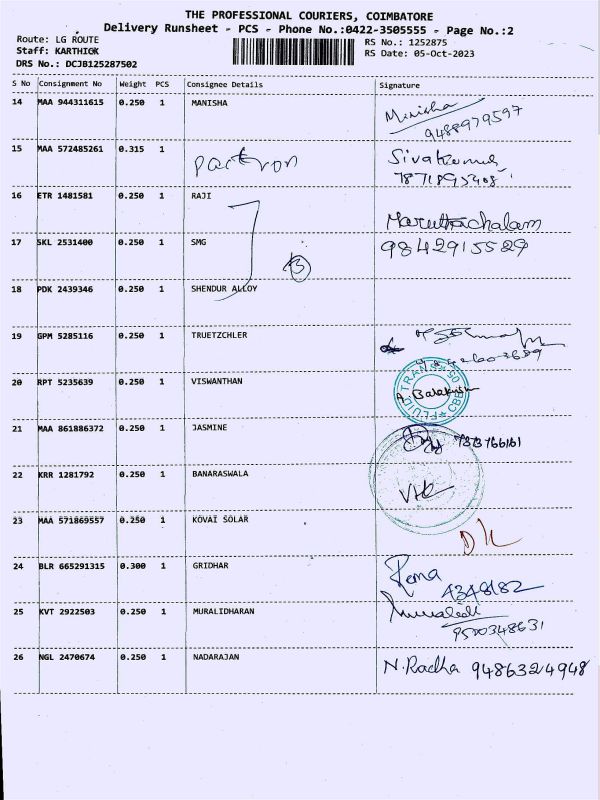 THE PROFESSIONAL COURIERS, COIMBATORE
Delivery Runsheet - PCS - Phone No.:0422-3505555 - Page No.:2
Route: LG ROUTE
RS No.: 1252875
Staff: KARTHICK
RS Date: 05-Oct-2023
DRS No.: DCJB125287502
S No Consignment No Weight PCS Consignee Details Signature
14 MAA 944311615 0.250 1 MANISHA Manisha
9488979597
15 MAA 572485261 0.315 1 partron Sivakumar
7871895408
16 ETR 1481581 0.250 1 RAJI
Maruthachalam
17 SKL 2531400 0.250 1 SMG 9842915529
3
18 PDK 2439346 0.250 1 SHENDUR ALLOY
19 GPM 5285116 0.250 1 TRUETZCHLER
20 RPT 5235639 0.250 1 VISWANTHAN A. Balakrish
FLUID TRANS CBE
21 MAA 861886372 0.250 1 JASMINE 7373766161
22 KRR 1281792 0.250 1 BANARASWALA
23 MAA 571869557 0.250 1 KOVAI SOLAR
24 BLR 665291315 0.300 1 GRIDHAR Rema
4348182
25 KVT 2922503 0.250 1 MURALIDHARAN
9500348631
26 NGL 2470674 0.250 1 NADARAJAN N. Radha 9486324948